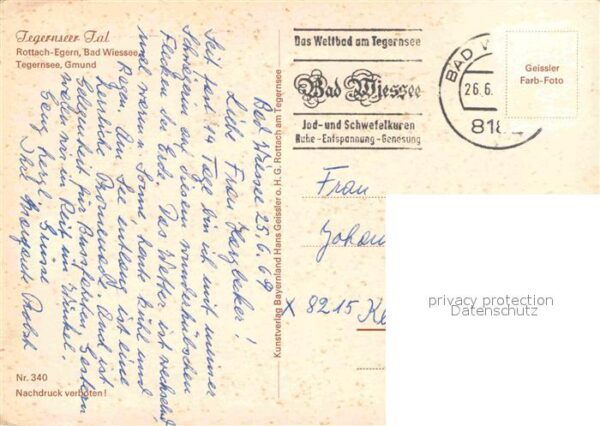 Tegernseer Tal
Rottach-Egern, Bad Wiessee,
Tegernsee, Gmund
Bad Wiessee 25.6.69
Liebe Frau
Seit fast 14 Tage bin ich mit meiner
Schwägerin auf diesem wunderhübschen
Flecken der Erde. Das Wetter ist wechselnd
mal warm Sonne, heute kühl und
Regen. Am See entlang ist eine
herrliche Promenade. Auch ist
Gelegenheit für Busfahrten. Gestern
waren wir in Reit im Winkel.
Ganz herzl. Grüsse
Ihre Margarete Probst
Nr. 340
Nachdruck verboten!
Kunstverlag Bayernland Hans Geissler o.H.G. Rottach am Tegernsee
Das Weltbad am Tegernsee
Bad Wiessee
Jod- und Schwefelkuren
Ruhe - Entspannung - Genesung
BAD
26.6.
818
Geissler
Farb-Foto
Frau
Johan
x 8215 Ke
privacy protection
Datenschutz